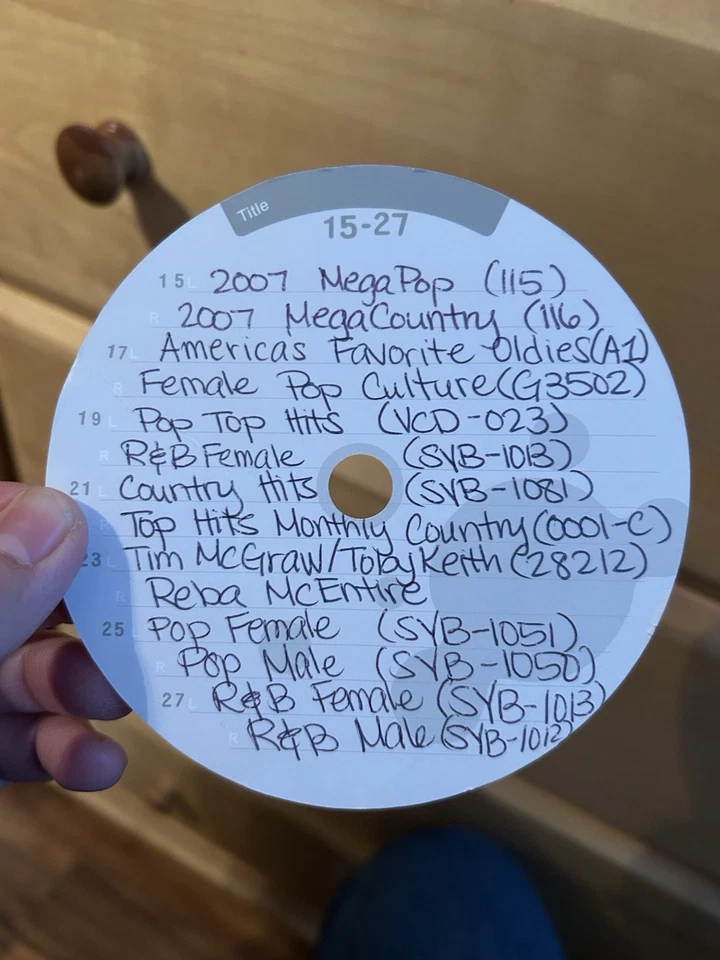 Title
15-27
15L 2007 MegaPop (115)
R 2007 MegaCountry (116)
17L Americas Favorite Oldies(A1)
R Female Pop Culture(G3502)
19L Pop Top Hits (VCD-023)
R R&B Female (SYB-1013)
21L Country Hits (SYB-1081)
R Top Hits Monthly Country(0001-C)
23L Tim McGraw/Toby Keith (28212)
R Reba McEntire
25L Pop Female (SYB-1051)
R Pop Male (SYB-1050)
27L R&B Female (SYB-1013)
R R&B Male (SYB-1012)